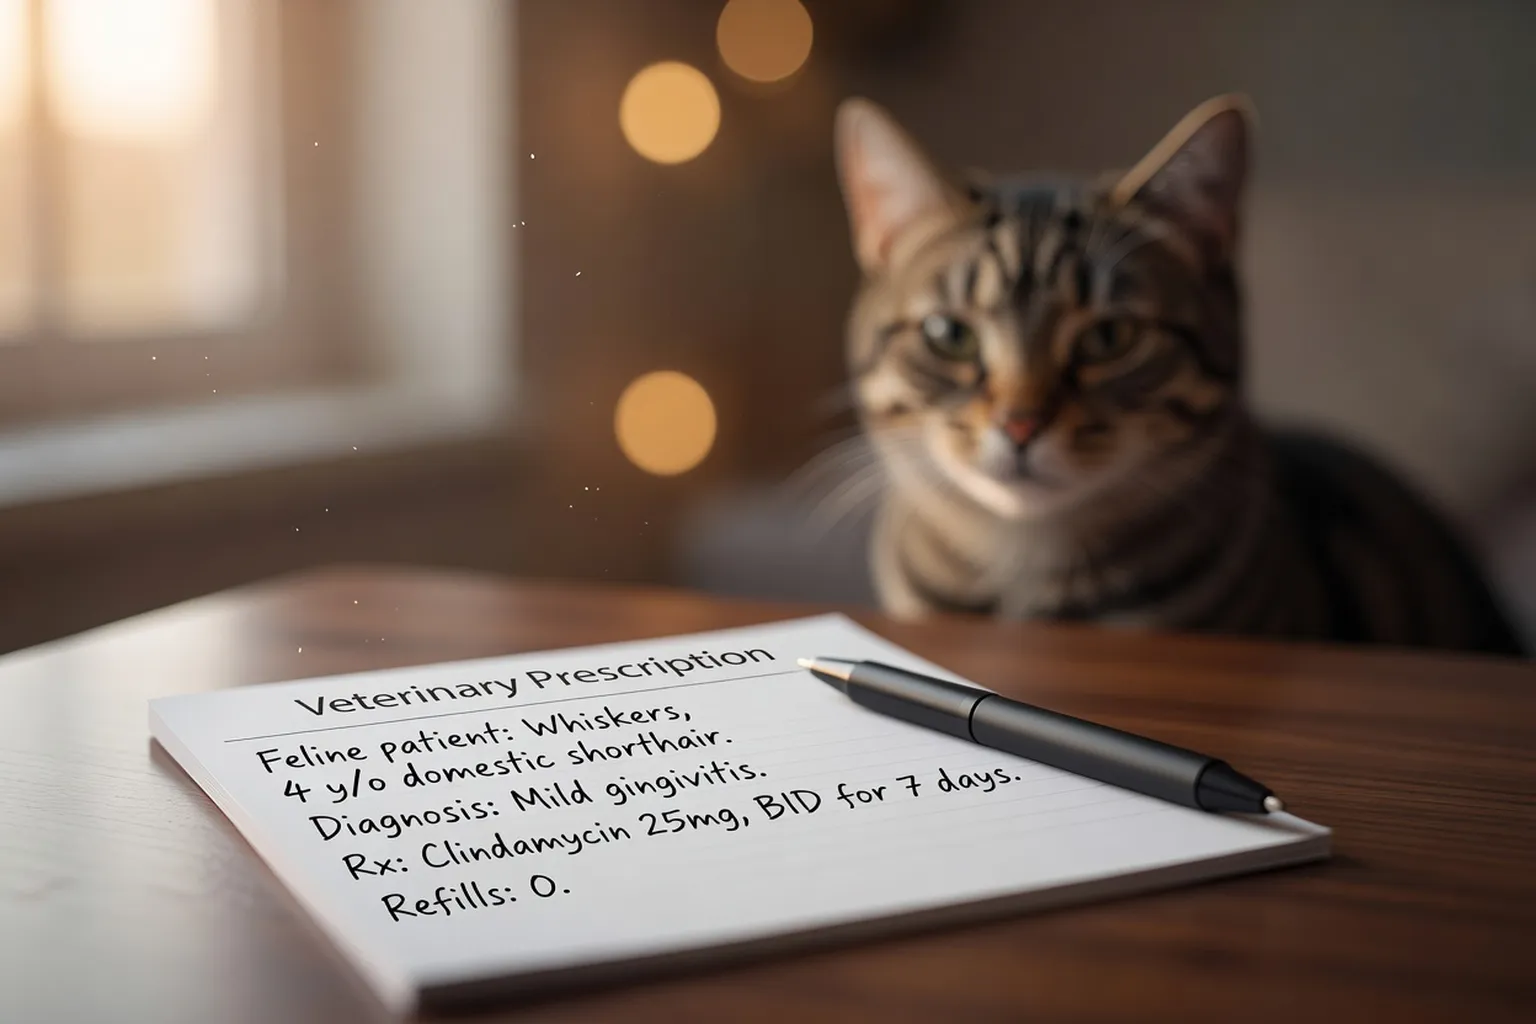 Veterinary Prescription
Feline patient: Whiskers,
4 y/o domestic shorthair.
Diagnosis: Mild gingivitis.
Rx: Clindamycin 25mg, BID for 7 days.
Refills: 0.